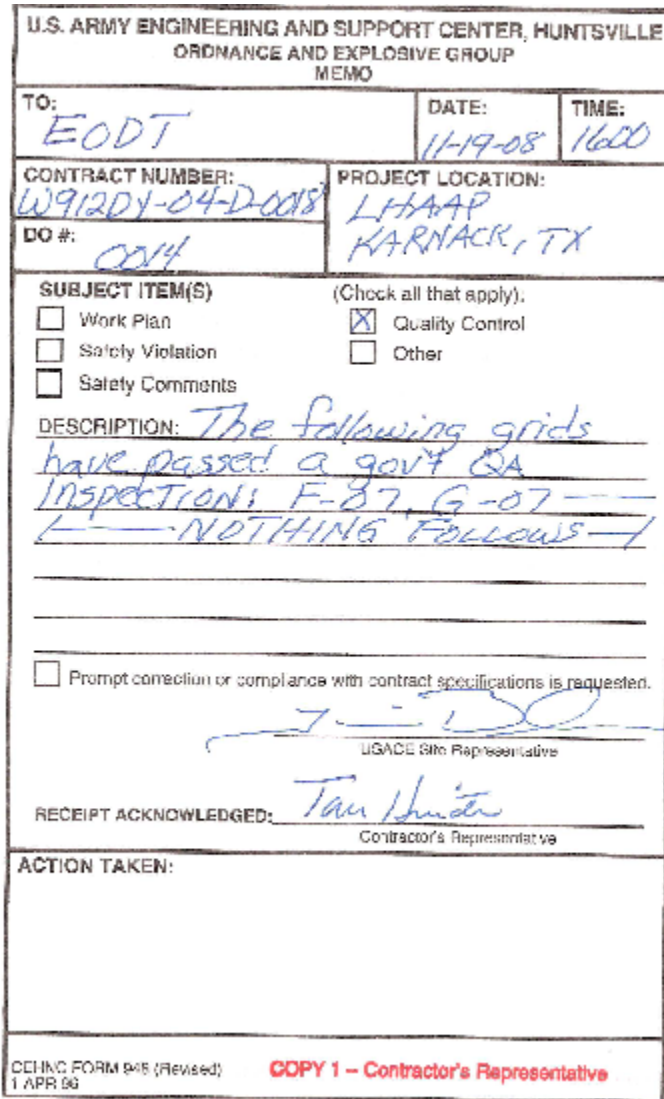 U.S. ARMY ENGINEERING AND SUPPORT CENTER, HUNTSVILLE
ORDNANCE AND EXPLOSIVE GROUP
MEMO
TO: EODT
DATE: 11-19-08
TIME: 1600
CONTRACT NUMBER: W912DY-04-D-0018
PROJECT LOCATION: LHAAP
KARNACK, TX
DO #: 0014
SUBJECT ITEM(S) (Check all that apply):
Work Plan
X Quality Control
Safety Violation
Other
Safety Comments
DESCRIPTION: The following grids
have passed a gov't QA
INSPECTION: F-07, G-07
NOTHING FOLLOWS
Prompt correction or compliance with contract specifications is requested.
USACE Site Representative
RECEIPT ACKNOWLEDGED:
Contractor's Representative
ACTION TAKEN:
CEHNC FORM 948 (Revised)
1 APR 96
COPY 1 – Contractor's Representative